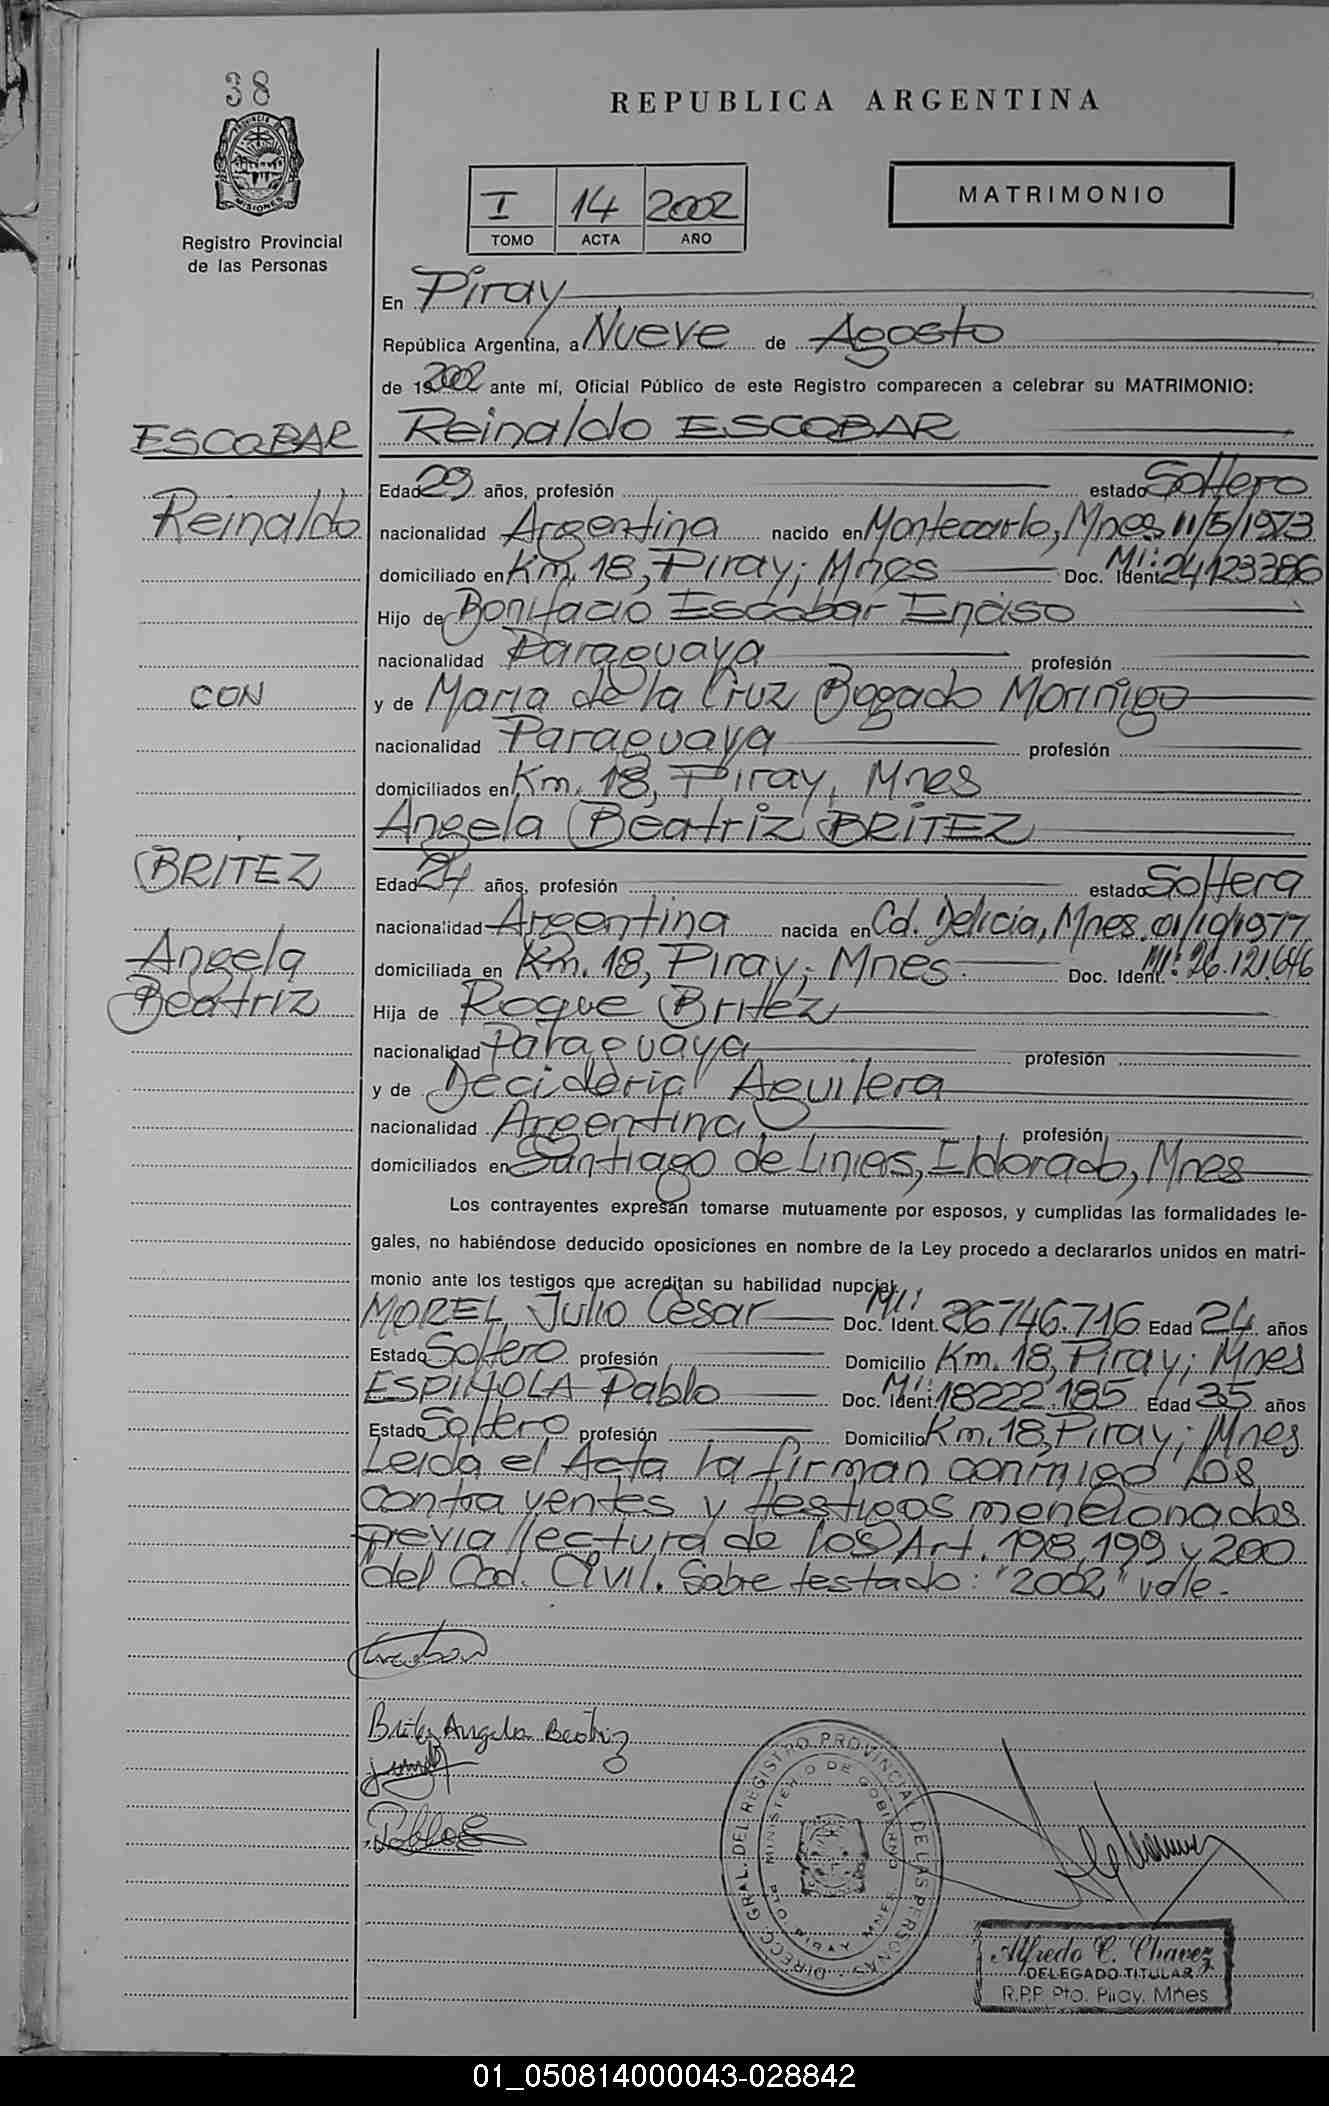 38
REPUBLICA ARGENTINA
I 14 2002
TOMO ACTA AÑO
MATRIMONIO
PROVINCIA
MISIONES
Registro Provincial
de las Personas
En Piray
República Argentina, a Nueve de Agosto
de 192002 ante mí, Oficial Público de este Registro comparecen a celebrar su MATRIMONIO:
ESCOBAR Reinaldo ESCOBAR
Edad 29 años, profesión estado Soltero
Reinaldo nacionalidad Argentina nacido en Montecarlo, Mnes 11/5/1973
domiciliado en Km. 18, Piray; Mnes Doc. Ident. MI: 24123386
Hijo de Bonifacio Escobar Enciso
nacionalidad Paraguaya profesión
CON y de Maria de la Cruz Bogado Moriñigo
nacionalidad Paraguaya profesión
domiciliados en Km. 18, Piray, Mnes
Angela Beatriz BRITEZ
BRITEZ Edad 24 años, profesión estado Soltera
nacionalidad Argentina nacida en Cd. Delicia, Mnes. 01/10/1977
Angela domiciliada en Km. 18, Piray; Mnes. Doc. Ident. MI: 26.121.646
Beatriz Hija de Roque Britez
nacionalidad Paraguaya profesión
y de Decideria Aguilera
nacionalidad Argentina profesión
domiciliados en Santiago de Liniers, Eldorado, Mnes
Los contrayentes expresan tomarse mutuamente por esposos, y cumplidas las formalidades le-
gales, no habiéndose deducido oposiciones en nombre de la Ley procedo a declararlos unidos en matri-
monio ante los testigos que acreditan su habilidad nupcial.
MOREL, Julio Cesar Doc. Ident. MI: 26746.716 Edad 24 años
Estado Soltero profesión Domicilio Km. 18, Piray; Mnes
ESPINOLA Pablo Doc. Ident. MI: 18222.185 Edad 35 años
Estado Soltero profesión Domicilio Km. 18, Piray; Mnes
Leida el Acta la firman conmigo los
contrayentes y testigos mencionados
previa lectura de los Art. 198, 199 y 200
del Cod. Civil. Sobre testado: "2002" vale.
Britez Angela Beatriz
Pablo E
DIRECC. GRAL. DEL REGISTRO PROVINCIAL DE LAS PERSONAS
MINISTERIO DE GOBIERNO
PIRAY MNES
Alfredo C. Chavez
DELEGADO TITULAR
R.P.P. Pto. Piray. Mnes
01_050814000043-028842